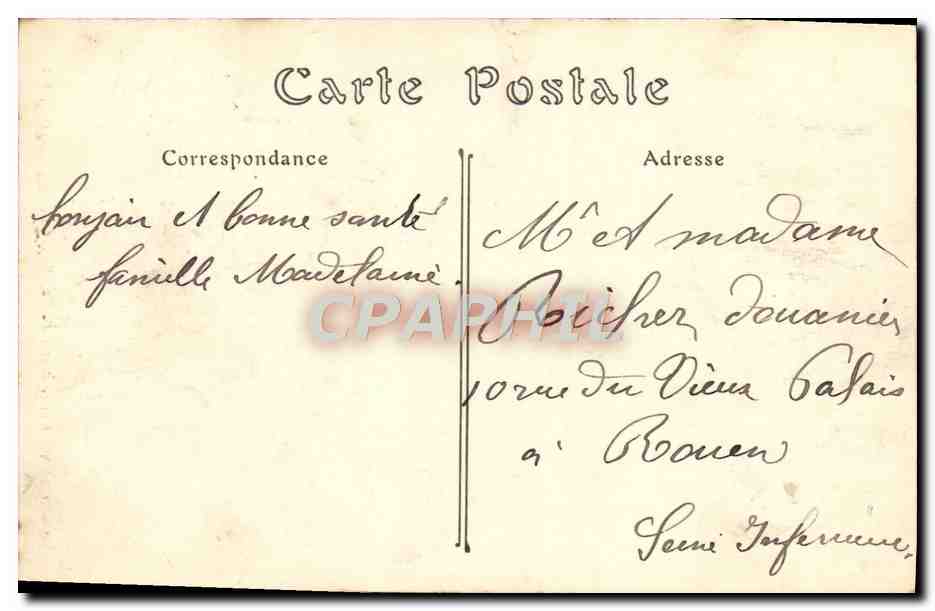 Carte Postale
Correspondance
bonjour et bonne santé
famille Madelaine
Adresse
Mr et madame
Richer douanier
10 rue du Vieux Palais
à Rouen
Seine Inferieure.
CPAPHIL